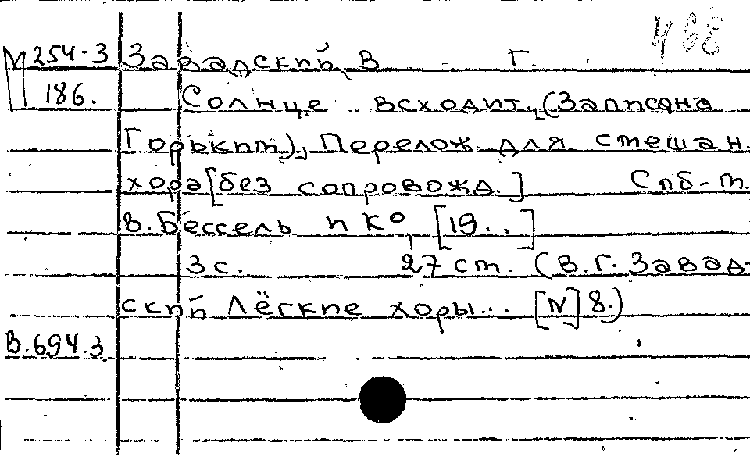 468
М 254-3 Завадский, В. Г.
186. Солнце всходит, (Записана
Горьким), Перелож. для смешан.
хора [без сопровожд.] Спб-М.
В. Бессель и К°, [19..]
3 с. 27 ст. (В.Г. Завад-
ский Лёгкие хоры... [N] 8.)
В.694.3